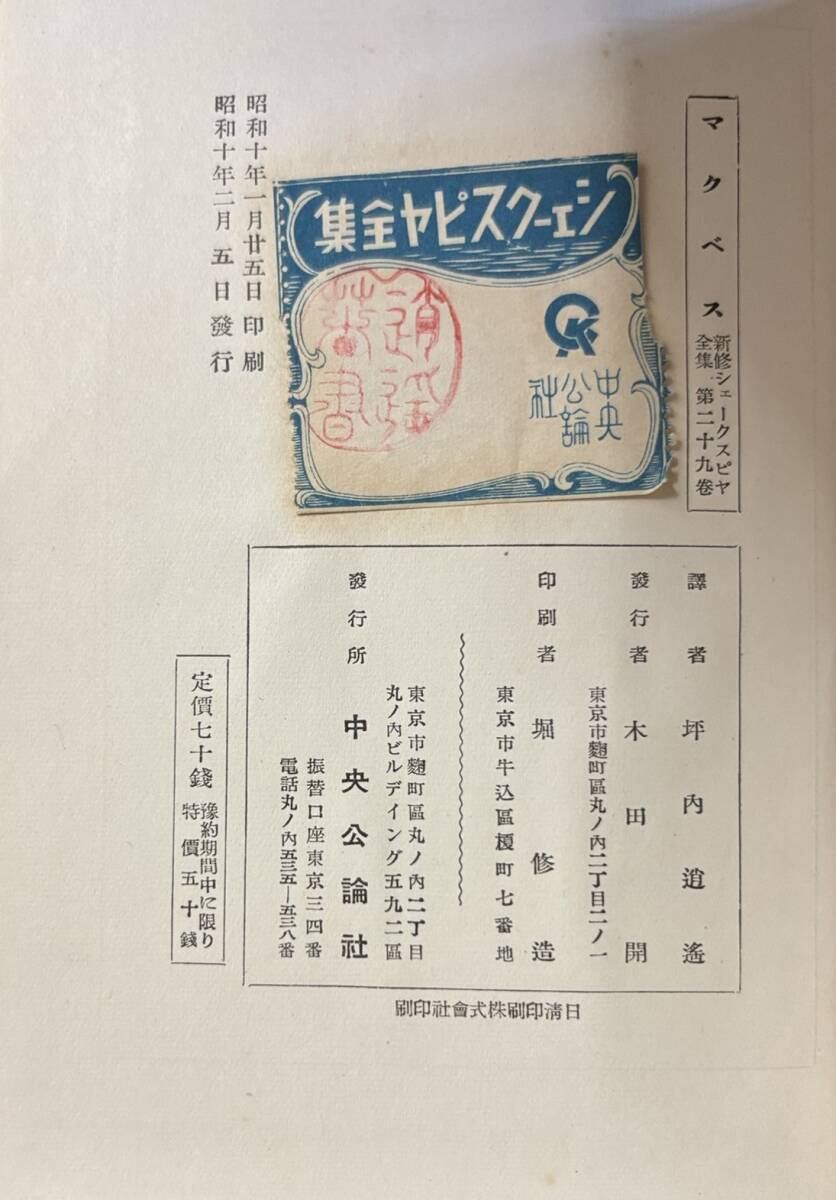 マクベス
新修シェークスピヤ
全集 第二十九卷
シエークスピヤ全集
中央
公論
社
逍遙
昭和十年一月廿五日印刷
昭和十年二月五日發行
譯者 坪內逍遙
發行者 木田開
東京市麴町區丸ノ內二丁目二ノ一
印刷者 堀修造
東京市牛込區榎町七番地
發行所
東京市麴町區丸ノ內二丁目
丸ノ內ビルデイング五九二區
中央公論社
振替口座東京三四番
電話丸ノ內五三五―五三八番
日淸印刷株式會社印刷
定價七十錢
豫約期間中に限り
特價五十錢